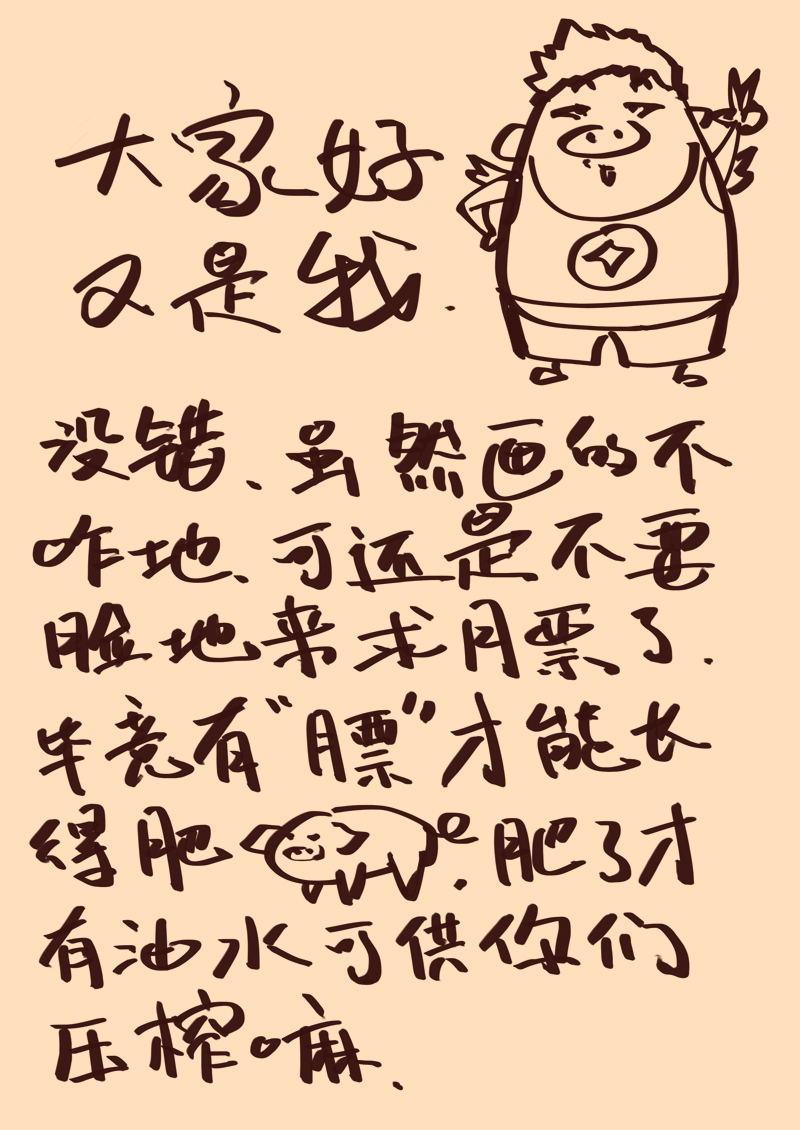 大家好
又是我.
没错、虽然画的不
咋地、可还是不要
脸地来求月票了.
毕竟有“膘”才能长
得肥.肥了才
有油水可供你们
压榨嘛.